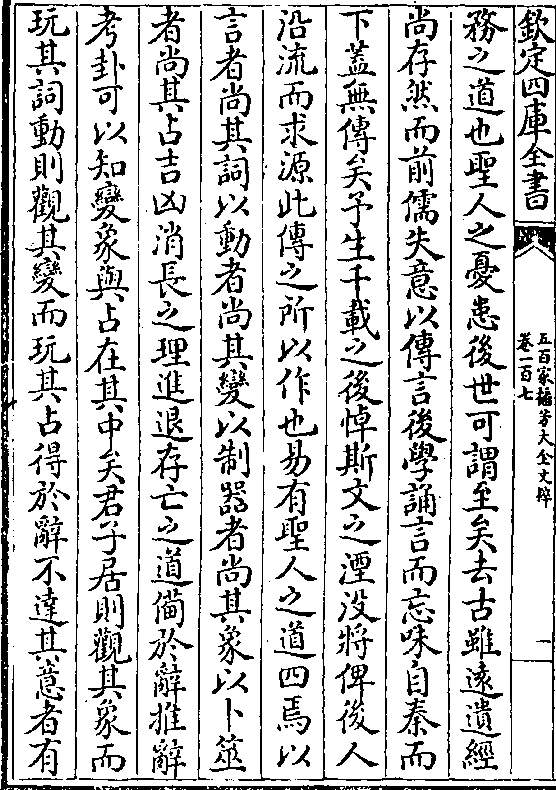 欽定四庫全書
五百家播芳大全文粹
卷一百七
一
務之道也聖人之憂患後世可謂至矣去古雖遠遺經
尚存然而前儒失意以傳言後學誦言而忘味自秦而
下蓋無傳矣予生千載之後悼斯文之湮没將俾後人
沿流而求源此傳之所以作也易有聖人之道四焉以
言者尚其詞以動者尚其變以制器者尚其象以卜筮
者尚其占吉凶消長之理進退存亡之道備於辭推辭
考卦可以知變象與占在其中矣君子居則觀其象而
玩其詞動則觀其變而玩其占得於辭不達其意者有